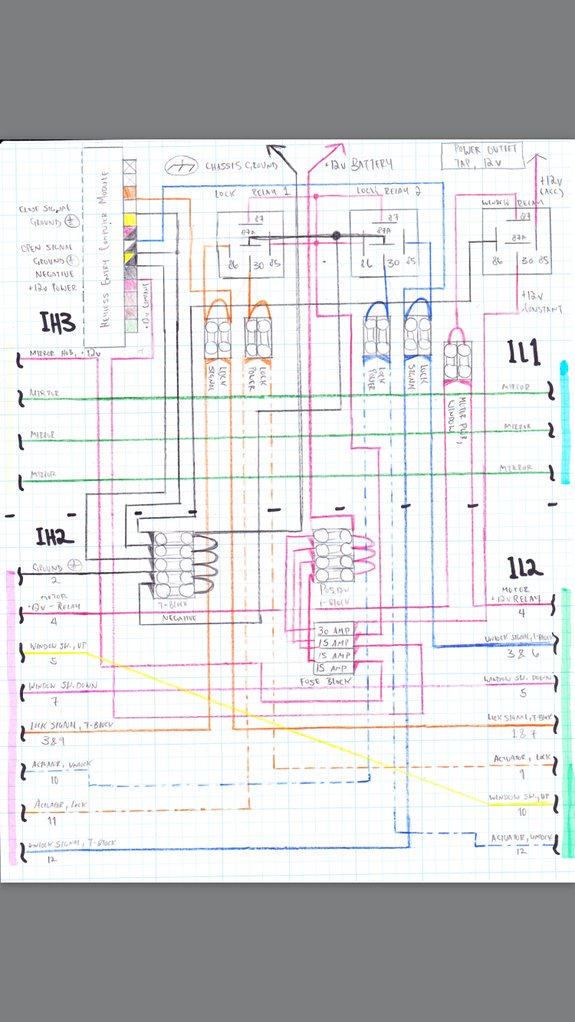 CHASSIS GROUND
+12V BATTERY
POWER OUTLET
TAP, 12V
+12V
(ACC)
KEYLESS ENTRY COMPUTER MODULE
CLOSE SIGNAL
GROUND
OPEN SIGNAL
GROUND
NEGATIVE
+12V POWER
LOCK RELAY 1
LOCK RELAY 2
WINDOW RELAY
87
87A
86 30 85
87
87A
30 85
87
87A
86 30 85
+12V
CONSTANT
IH3
IL1
MIRROR HTD, +12V
LOCK
SIGNAL
LOCK
POWER
LOCK
POWER
LOCK
SIGNAL
MOTOR PWR,
WINDOW
MIRROR
MIRROR
MIRROR
MIRROR
MIRROR
MIRROR
IH2
IL2
GROUND
2
MOTOR
+12V - RELAY
4
WINDOW SW, UP
5
WINDOW SW. DOWN
7
LOCK SIGNAL, T-BLOCK
3&9
ACTUATOR, UNLOCK
10
ACTUATOR, LOCK
11
UNLOCK SIGNAL, T-BLOCK
12
T-BLOCK
NEGATIVE
POSITIV
T-BLOCK
30 AMP
15 AMP
15 AMP
15 AMP
FUSE BLOCK
MOTOR
+12V RELAY
4
UNLOCK SIGNAL, T-BLOCK
3&6
WINDOW SW. DOWN
5
LOCK SIGNAL, T-BLOCK
1&7
ACTUATOR, LOCK
9
WINDOW SW, UP
10
ACTUATOR, UNLOCK
12